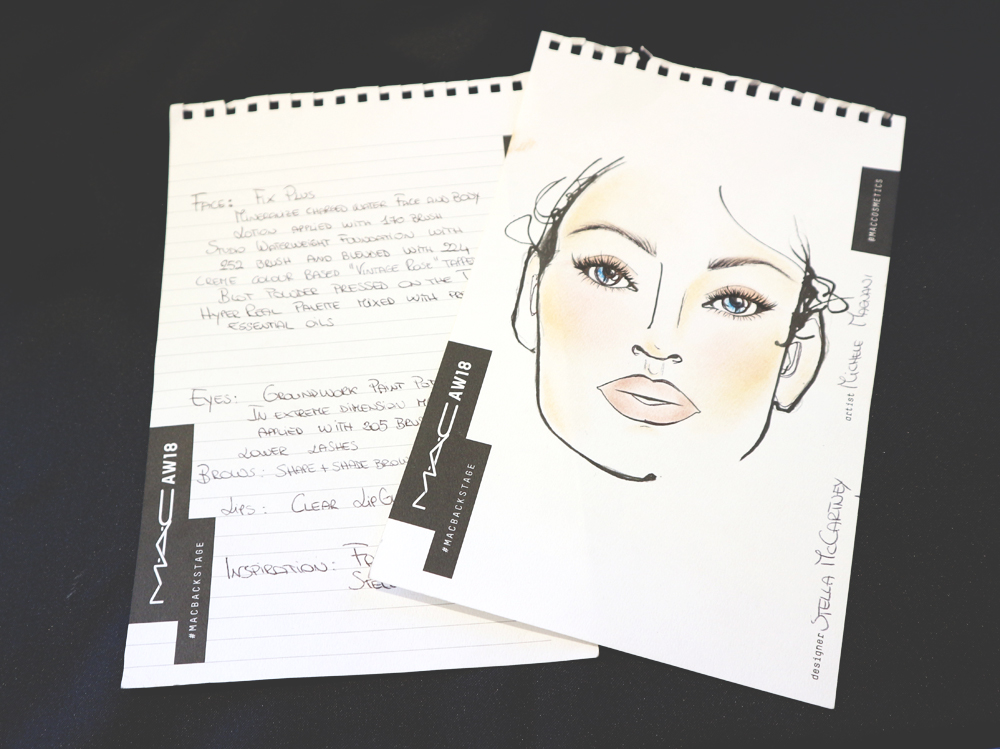 FACE: FIX PLUS
MINERALIZE CHARGED WATER FACE AND BODY
LOTION APPLIED WITH 170 BRUSH
STUDIO WATERWEIGHT FOUNDATION WITH
252 BRUSH AND BLENDED WITH 224
CREME COLOUR BASED "VINTAGE ROSE"
BLOT POWDER PRESSED ON THE T
HYPER REAL PALETTE MIXED WITH
ESSENTIAL OILS
EYES: GROUNDWORK PAINT POT
IN EXTREME DIMENSION
APPLIED WITH 205
LOWER LASHES
BROWS: SHAPE + SHADE BROW
LIPS: CLEAR
INSPIRATION:
MAC AW18
#MACBACKSTAGE
#MACCOSMETICS
MAC AW18
#MACBACKSTAGE
artist MICHELE MAGNANI
designer STELLA McCARTNEY